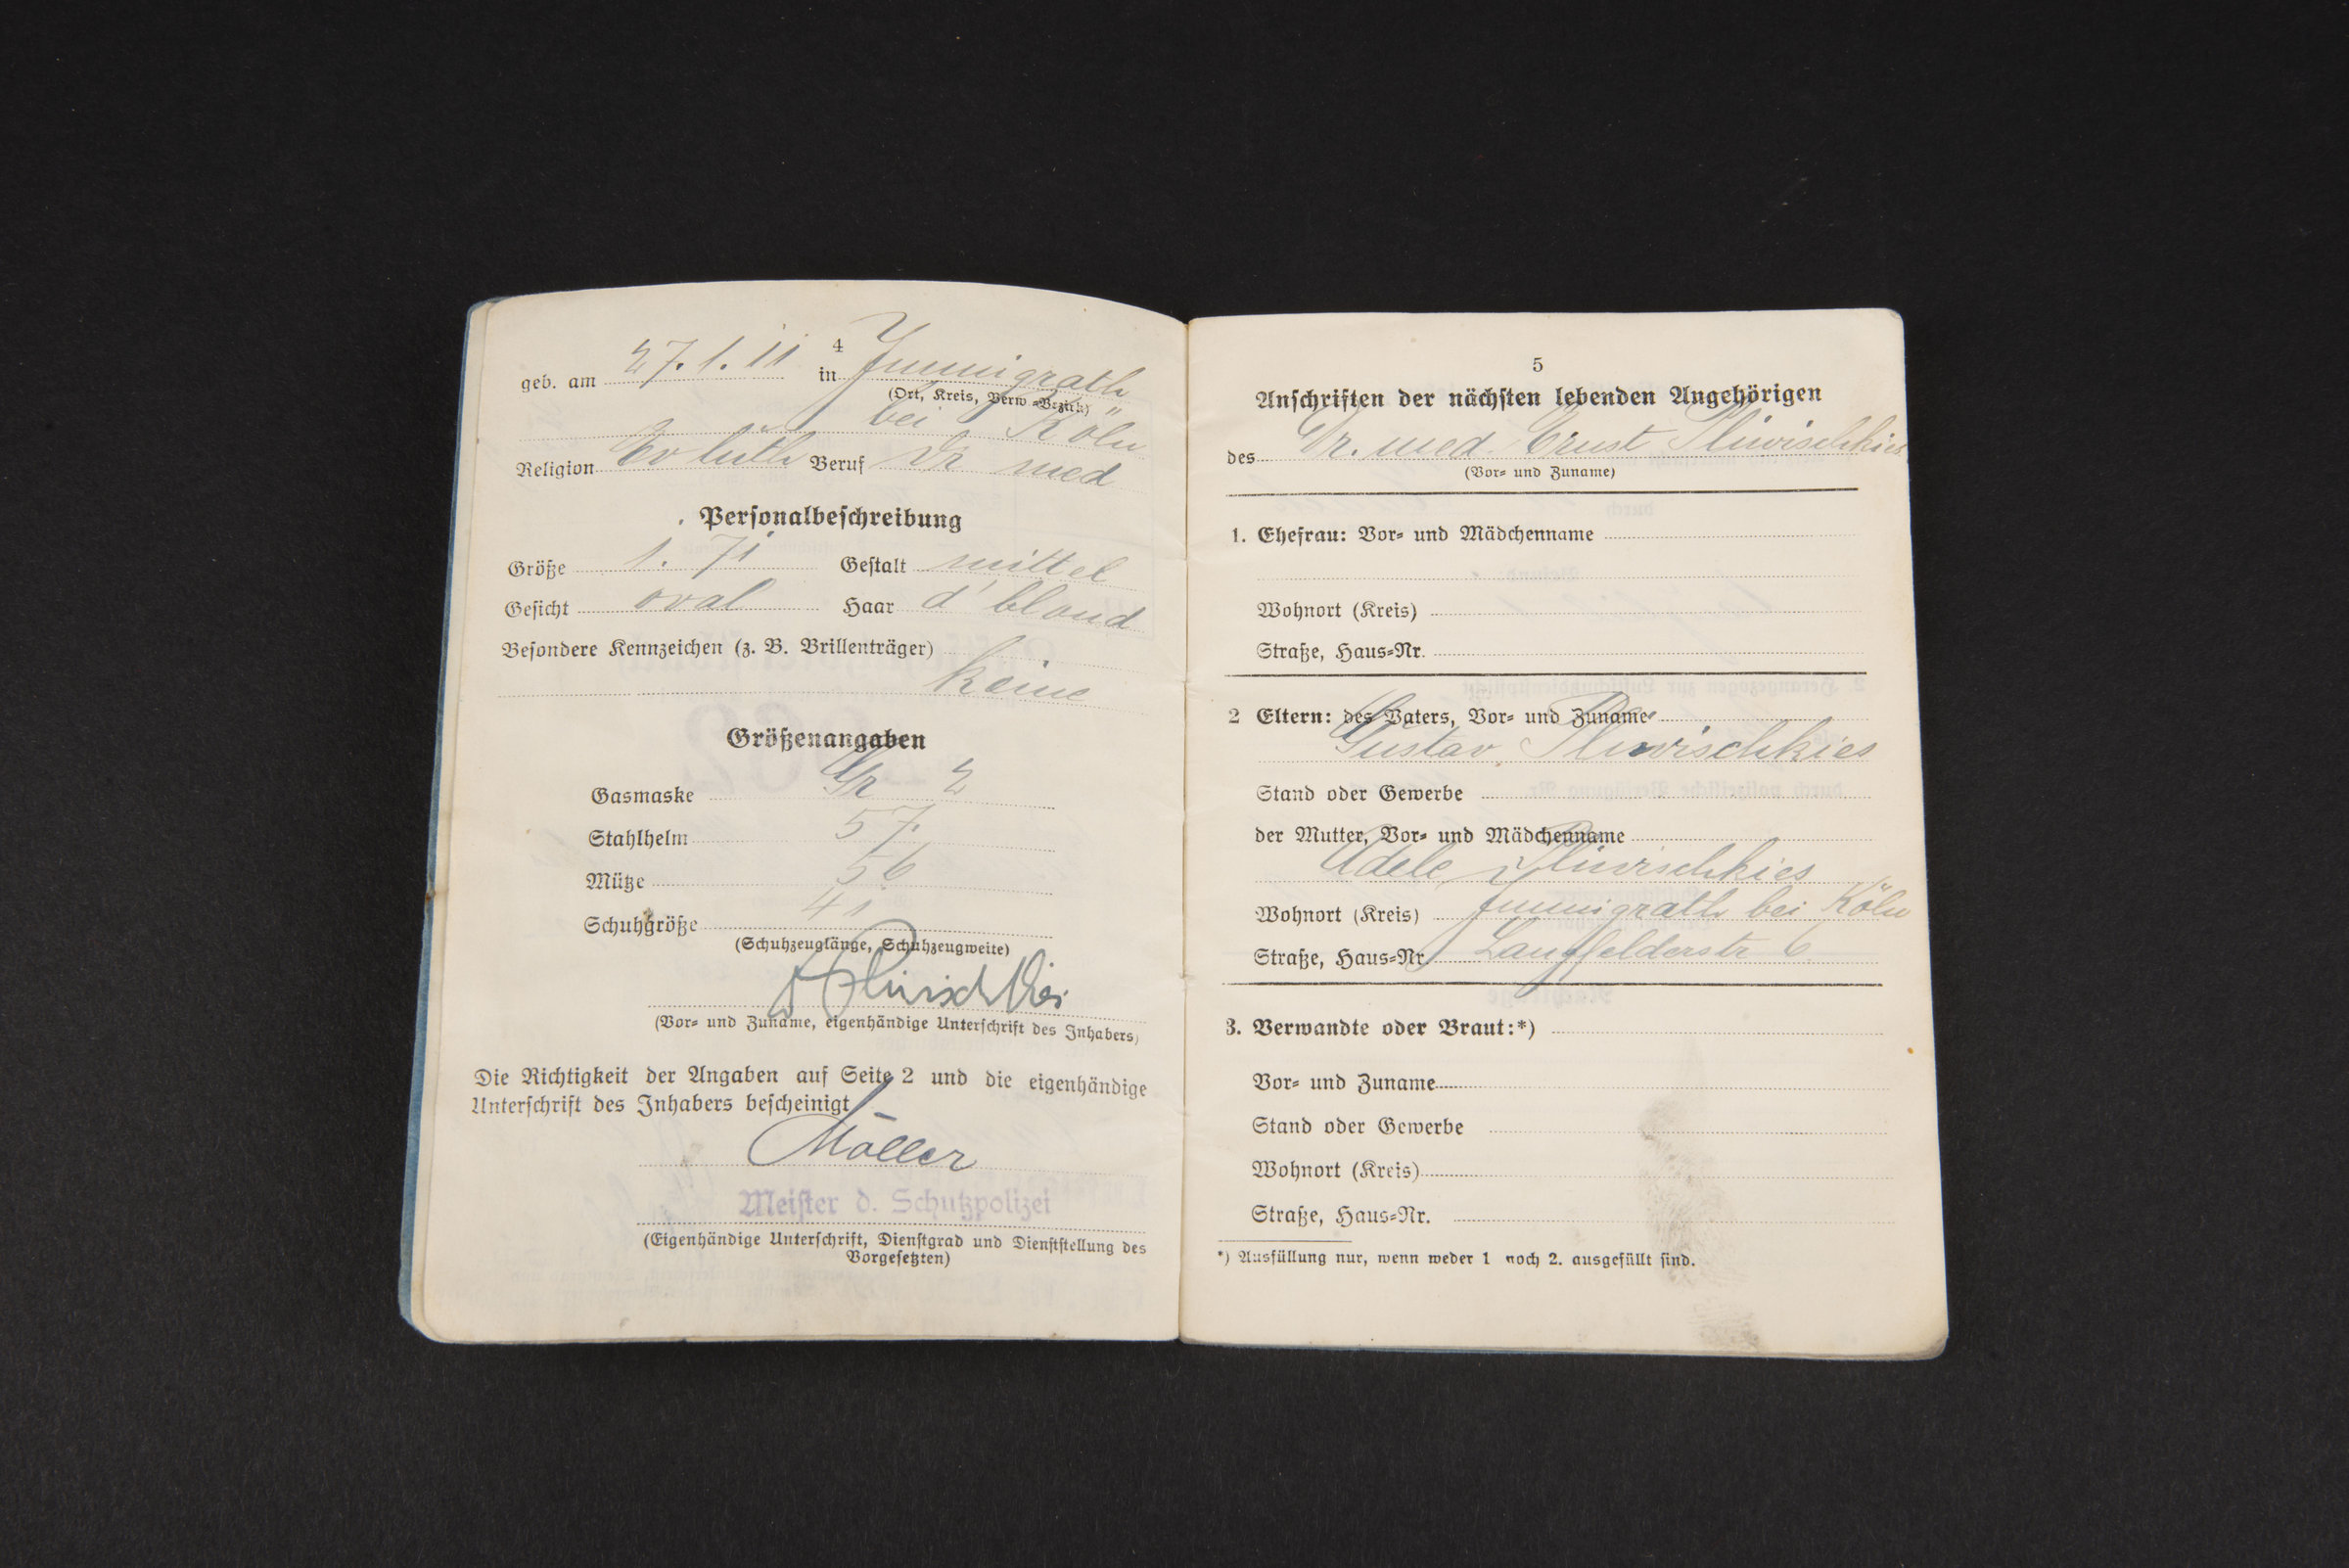 4
geb. am 27.1.11 in Immigrath
(Ort, Kreis, Verw.=Bezirk)
bei Köln
Religion Ev luth Beruf Dr med
Personalbeschreibung
Größe 1.71 Gestalt mittel
Gesicht oval Haar d'blond
Besondere Kennzeichen (z. B. Brillenträger)
keine
Größenangaben
Gasmaske Gr 2
Stahlhelm 57
Mütze 56
Schuhgröße 41
(Schuhzeuglänge, Schuhzeugweite)
(Vor= und Zuname, eigenhändige Unterschrift des Inhabers)
Die Richtigkeit der Angaben auf Seite 2 und die eigenhändige
Unterschrift des Inhabers bescheinigt
Möller
Meister d. Schutzpolizei
(Eigenhändige Unterschrift, Dienstgrad und Dienststellung des
Vorgesetzten)
5
Anschriften der nächsten lebenden Angehörigen
des Dr. med. Ernst Pliwischkies
(Vor= und Zuname)
1. Ehefrau: Vor= und Mädchenname
Wohnort (Kreis)
Straße, Haus=Nr.
2 Eltern: des Vaters, Vor= und Zuname
Gustav Pliwischkies
Stand oder Gewerbe
der Mutter, Vor= und Mädchenname
Adele Pliwischkies
Wohnort (Kreis) Immigrath bei Köln
Straße, Haus=Nr. 6
3. Verwandte oder Braut:*)
Vor= und Zuname
Stand oder Gewerbe
Wohnort (Kreis)
Straße, Haus=Nr.
*) Ausfüllung nur, wenn weder 1 noch 2. ausgefüllt sind.